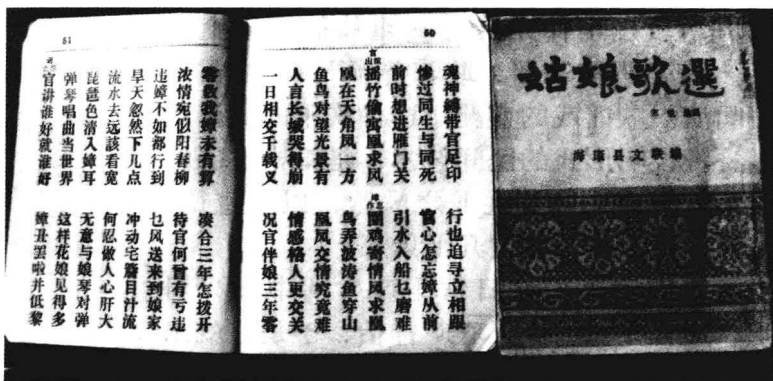 50
魂神縛带官足印 行也追寻立相跟
惨过同生与同死 官心怎忘嫜从前
前时想进雁门关 引水入船乜磨难
摇竹偷寓凰求风 圈鸡寄情风求凰
凰在天角风一方 鸟弄波涛鱼穿山
鱼鸟对望光景有 凰风交情究竟难
人言长城哭得崩 情感格人更交关
一日相交千载义 况官伴娘三年零
51
零数我嫜未有算 凑合三年怎拨开
浓情宛似阳春柳 待官何曾有亏违
违嫜不如都行到 乜风送来到娘家
旱天忽然下几点 冲动宅目汁流
流水去远該看宽 何忍做人心肝大
琵琶色清入嫜耳 无意与娘琴对弹
弹琴唱曲当世界 这样花娘见得多
官讲谁好就谁好 嫜丑罢啦并低黎
姑娘歌選
海康县文联编